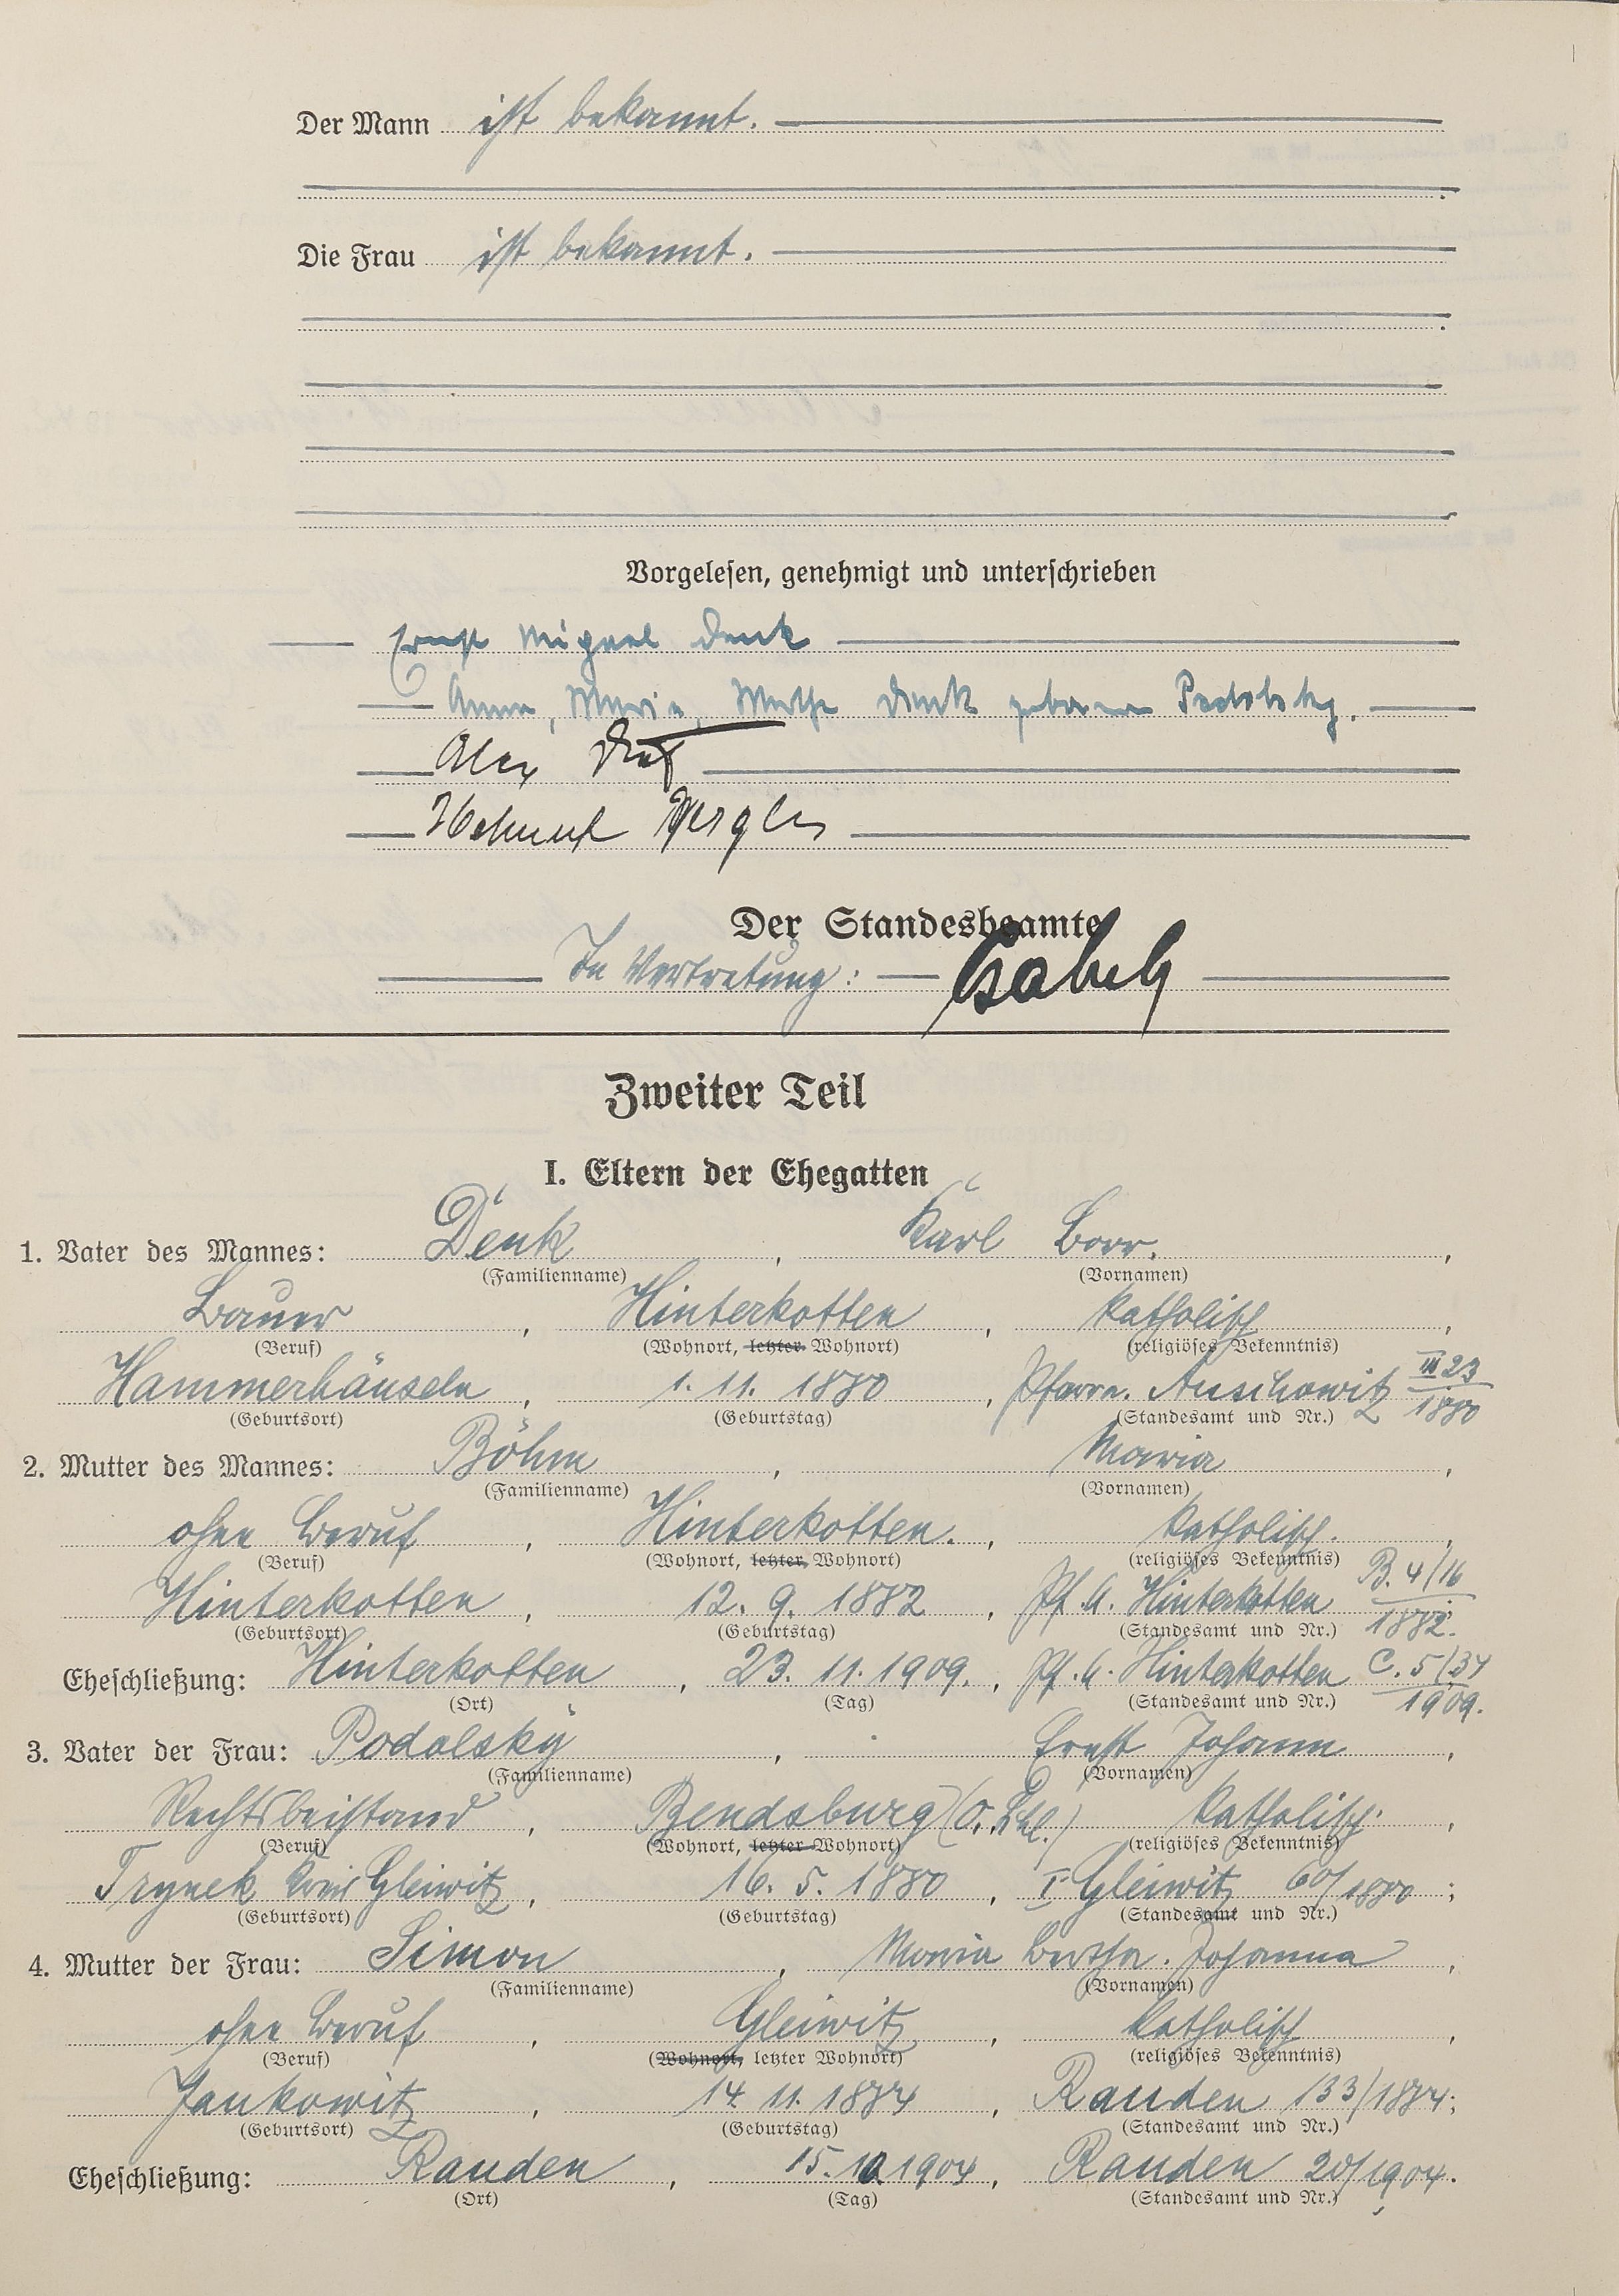 Der Mann ist bekannt.
Die Frau ist bekannt.
Vorgelesen, genehmigt und unterschrieben
Ernst Miguel Denk
Anna, Maria, Denk geborene Podolsky.
Alex
Helmut
Der Standesbeamte
In Vertretung:
Zweiter Teil
I. Eltern der Ehegatten
1. Vater des Mannes: Denk, Karl Borr.,
(Familienname) (Vornamen)
Bauer, Hinterkotten, katholisch,
(Beruf) (Wohnort, letzter Wohnort) (religiöses Bekenntnis)
Hammerhäuseln, 1. 11. 1880, Pfarre. Auschowitz III 23/1880
(Geburtsort) (Geburtstag) (Standesamt und Nr.)
2. Mutter des Mannes: Böhm, Maria,
(Familienname) (Vornamen)
ohne Beruf, Hinterkotten., katholisch.,
(Beruf) (Wohnort, letzter Wohnort) (religiöses Bekenntnis)
Hinterkotten, 12. 9. 1882, Pf. A. Hinterkotten B. 4/16/1882.
(Geburtsort) (Geburtstag) (Standesamt und Nr.)
Eheschließung: Hinterkotten, 23. 11. 1909., Pf. A. Hinterkotten C. 5/34/1909.
(Ort) (Tag) (Standesamt und Nr.)
3. Vater der Frau: Podolsky, Ernst Johann,
(Familienname) (Vornamen)
Rechtsbeistand, Bendsburg (O. Schl.) katholisch,
(Beruf) (Wohnort, letzter Wohnort) (religiöses Bekenntnis)
Trynek Kreis Gleiwitz, 16. 5. 1880, I Gleiwitz 60/1880;
(Geburtsort) (Geburtstag) (Standesamt und Nr.)
4. Mutter der Frau: Simon, Maria Bertha Johanna,
(Familienname) (Vornamen)
ohne Beruf, Gleiwitz, katholisch,
(Beruf) (Wohnort, letzter Wohnort) (religiöses Bekenntnis)
Jankowitz, 14. 11. 1884, Rauden 133/1884;
(Geburtsort) (Geburtstag) (Standesamt und Nr.)
Eheschließung: Rauden, 15. 10. 1904, Rauden 20/1904.
(Ort) (Tag) (Standesamt und Nr.)